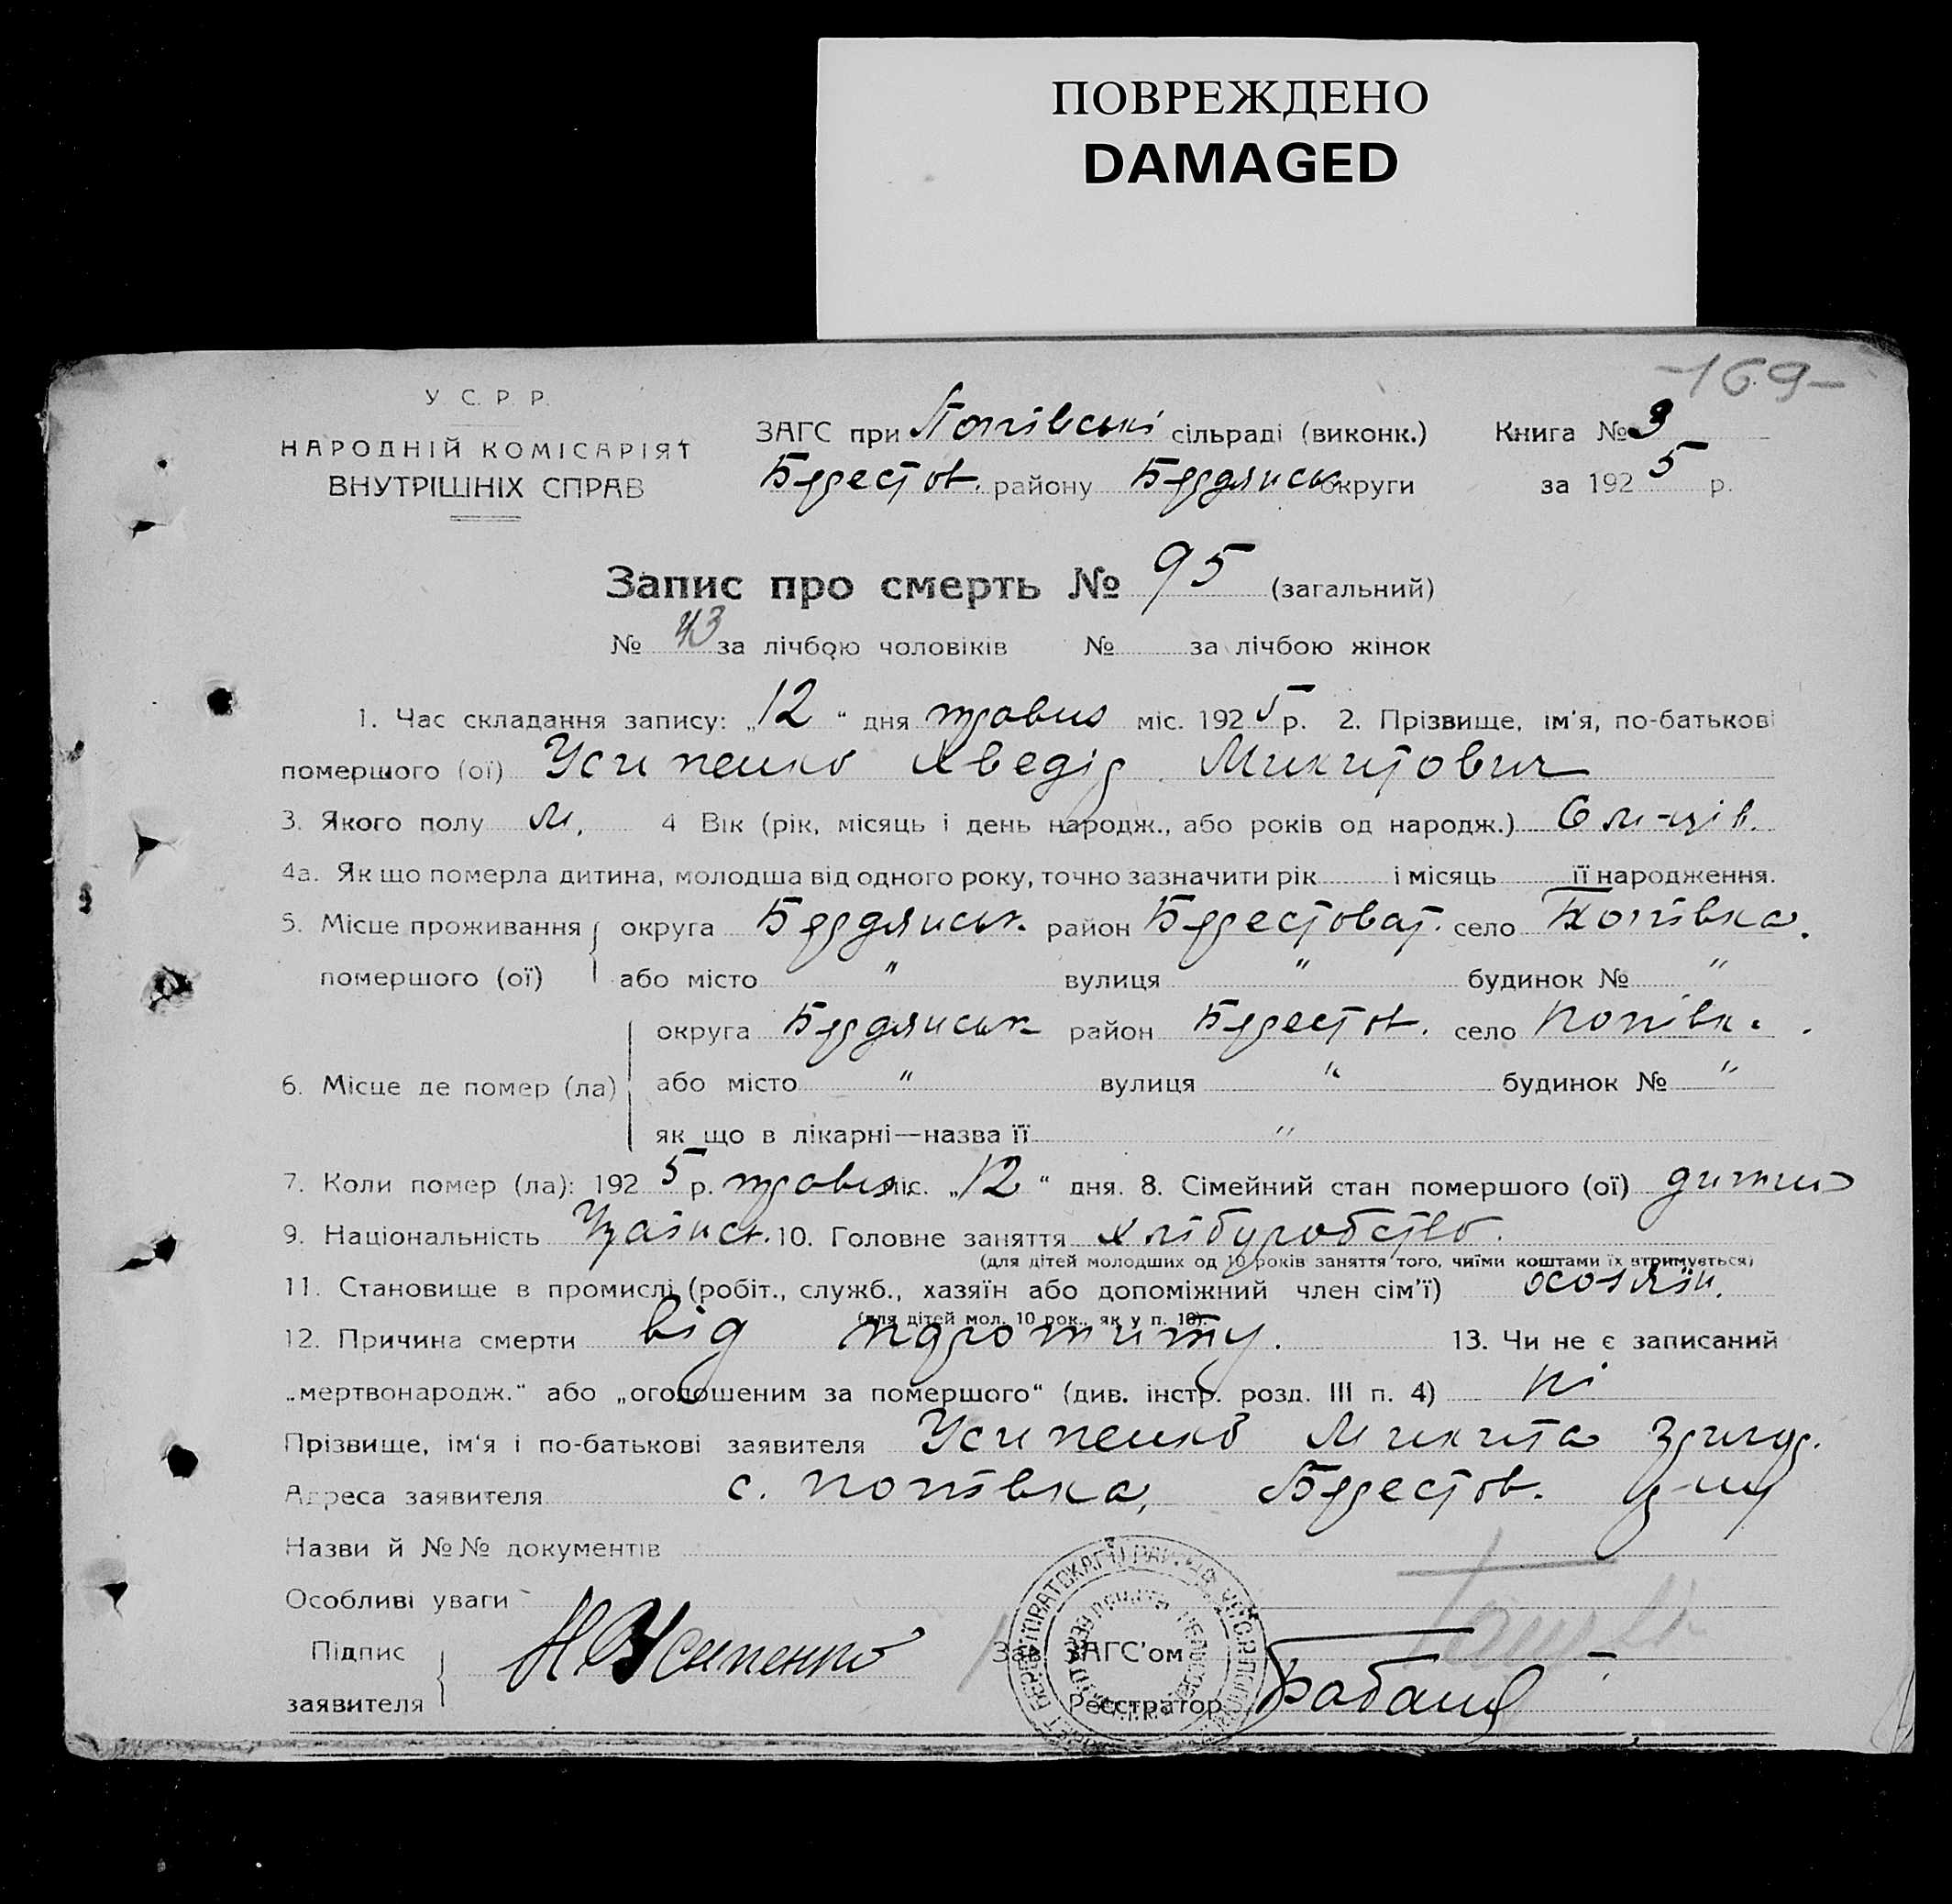 ПОВРЕЖДЕНО
DAMAGED
-169-
У. С. Р. Р.
НАРОДНІЙ КОМІСАРІЯТ
ВНУТРІШНІХ СПРАВ
ЗАГС при Попівські сільраді (виконк.) Книга № 3
Берестов. району Бердянськ округи за 1925 р.
Запис про смерть № 95 (загальний)
№ 43 за лічбою чоловіків № за лічбою жінок
1. Час складання запису: „12“ дня травня міс. 1925 р. 2. Прізвище, ім'я, по-батькові
помершого (ої) Усипенко Хведір Микитович
3. Якого полу м. 4 Вік (рік, місяць і день народж., або років од народж.) 6 м-ців.
4а. Як що померла дитина, молодша від одного року, точно зазначити рік і місяць її народження.
5. Місце проживання округа Бердянськ. район Берестоват. село Попівка.
помершого (ої) або місто " вулиця " будинок № "
округа Бердянськ район Берестов. село Попівк.
6. Місце де помер (ла) або місто " вулиця " будинок № "
як що в лікарні—назва її "
7. Коли помер (ла): 1925 р. травня міс. „12“ дня. 8. Сімейний стан помершого (ої) дитина
9. Національність Українськ. 10. Головне заняття хліборобство.
(для дітей молодших од 10 років заняття того, чиїми коштами їх втримується)
11. Становище в промислі (робіт., служб., хазяїн або допоміжний член сім'ї)
(для дітей мол. 10 рок., як у п. 10).
12. Причина смерти від 13. Чи не є записаний
„мертвонародж.“ або „оголошеним за помершого“ (див. інстр. розд. III п. 4) ні
Прізвище, ім'я і по-батькові заявителя Усипенко Микита
Адреса заявителя с. Попівка, Берестов. р-ну
Назви й №№ документів
Особливі уваги
Підпис
заявителя Н Усипенко
Зав. ЗАГС'ом
Реєстратор